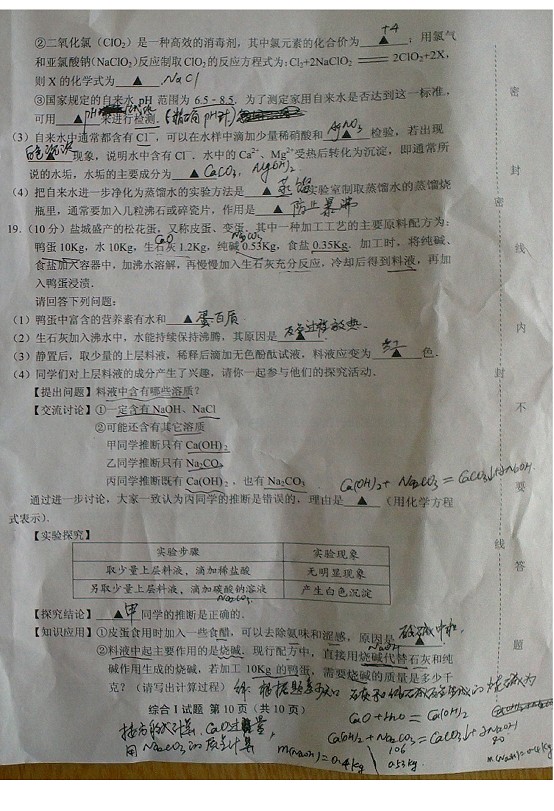 ②二氧化氯（ClO₂）是一种高效的消毒剂，其中氯元素的化合价为 ▲ +4 ；用氯气
和亚氯酸钠(NaClO₂)反应制取 ClO₂的反应方程式为: Cl₂+2NaClO₂ ══ 2ClO₂+2X,
则 X 的化学式为 ▲ NaCl
③国家规定的自来水 pH 范围为 6.5 - 8.5. 为了测定家用自来水是否达到这一标准，
可用 ▲ 来进行检测.
（3）自来水中通常都含有 Cl⁻，可以在水样中滴加少量稀硝酸和 ▲ AgNO₃ 检验，若出现
▲ 现象，说明水中含有 Cl⁻. 水中的 Ca²⁺、Mg²⁺受热后转化为沉淀，即通常所
说的水垢，水垢的主要成分为 ▲ CaCO₃, Mg(OH)₂
（4）把自来水进一步净化为蒸馏水的实验方法是 ▲ 蒸馏 实验室制取蒸馏水的蒸馏烧
瓶里，通常要加入几粒沸石或碎瓷片，作用是 ▲ 防止暴沸
19.（10 分）盐城盛产的松花蛋，又称皮蛋、变蛋，其中一种加工工艺的主要原料配方为：
CaO Na₂CO₃
鸭蛋 10Kg，水 10Kg，生石灰 1.2Kg，纯碱 0.53Kg，食盐 0.35Kg. 加工时，将纯碱、
食盐加入容器中，加沸水溶解，再慢慢加入生石灰充分反应，冷却后得到料液，再加
入鸭蛋浸渍.
请回答下列问题：
（1）鸭蛋中富含的营养素有水和 ▲ 蛋白质
（2）生石灰加入沸水中，水能持续保持沸腾，其原因是 ▲ 反应过程放热.
（3）静置后，取少量的上层料液，稀释后滴加无色酚酞试液，料液应变为 ▲ 红 色.
（4）同学们对上层料液的成分产生了兴趣，请你一起参与他们的探究活动.
【提出问题】料液中含有哪些溶质？
【交流讨论】①一定含有 NaOH、NaCl
②可能还含有其它溶质
甲同学推断只有 Ca(OH)₂
乙同学推断只有 Na₂CO₃
丙同学推断既有 Ca(OH)₂，也有 Na₂CO₃
Ca(OH)₂ + Na₂CO₃ = CaCO₃↓+2NaOH.
通过进一步讨论，大家一致认为丙同学的推断是错误的，理由是 ▲ （用化学方程
式表示）.
【实验探究】
实验步骤 实验现象
取少量上层料液，滴加稀盐酸 无明显现象
另取少量上层料液，滴加碳酸钠溶液 产生白色沉淀
Na₂CO₃
【探究结论】 ▲ 甲 同学的推断是正确的.
【知识应用】①皮蛋食用时加入一些食醋，可以去除氨味和涩感，原因是 ▲ 酸碱中和.
NaOH
②料液中起主要作用的是烧碱. 现行配方中，直接用烧碱代替石灰和纯
碱作用生成的烧碱，若加工 10Kg 的鸭蛋，需要烧碱的质量是多少千
克？（请写出计算过程）
综合Ⅰ试题 第 10 页（共 10 页）
CaO + H₂O = Ca(OH)₂
Ca(OH)₂ + Na₂CO₃ = CaCO₃↓+ 2NaOH
106 80
0.53kg
m(NaOH) = 0.4kg
m(NaOH)=0.4kg
密
封
线
内
不
要
答
题
密
封
线